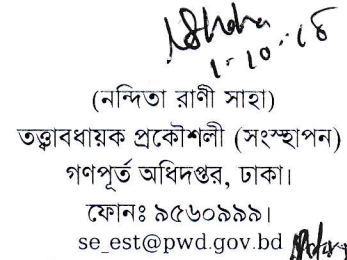 ১-১০-১৮
(নন্দিতা রাণী সাহা)
তত্ত্বাবধায়ক প্রকৌশলী (সংস্হাপন)
গণপূর্ত অধিদপ্তর, ঢাকা।
ফোনঃ ৯৫৬০৯৯৯।
se_est@pwd.gov.bd